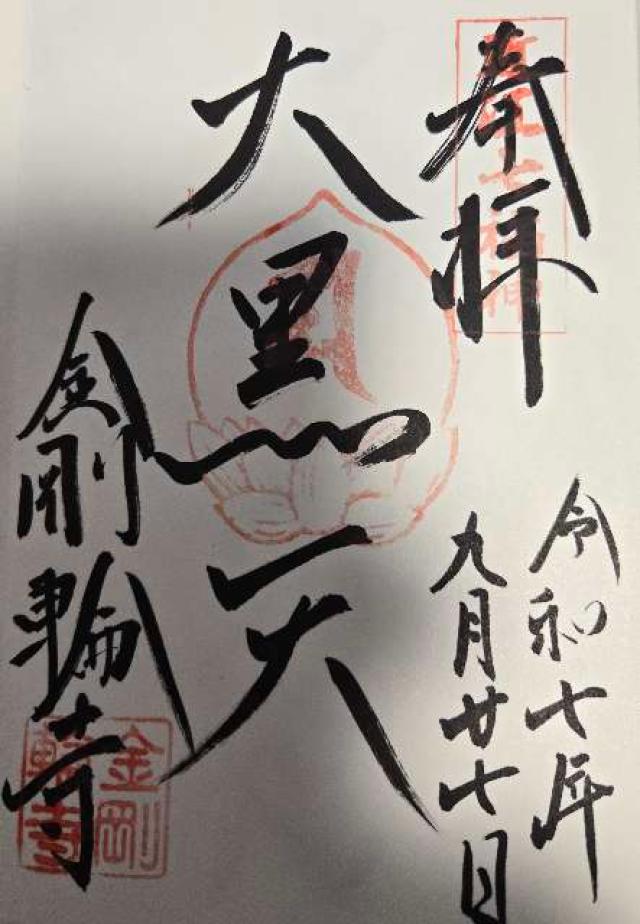 奉拝
令和七年
九月廿七日
大黒天
金剛輪寺
金剛
輪寺